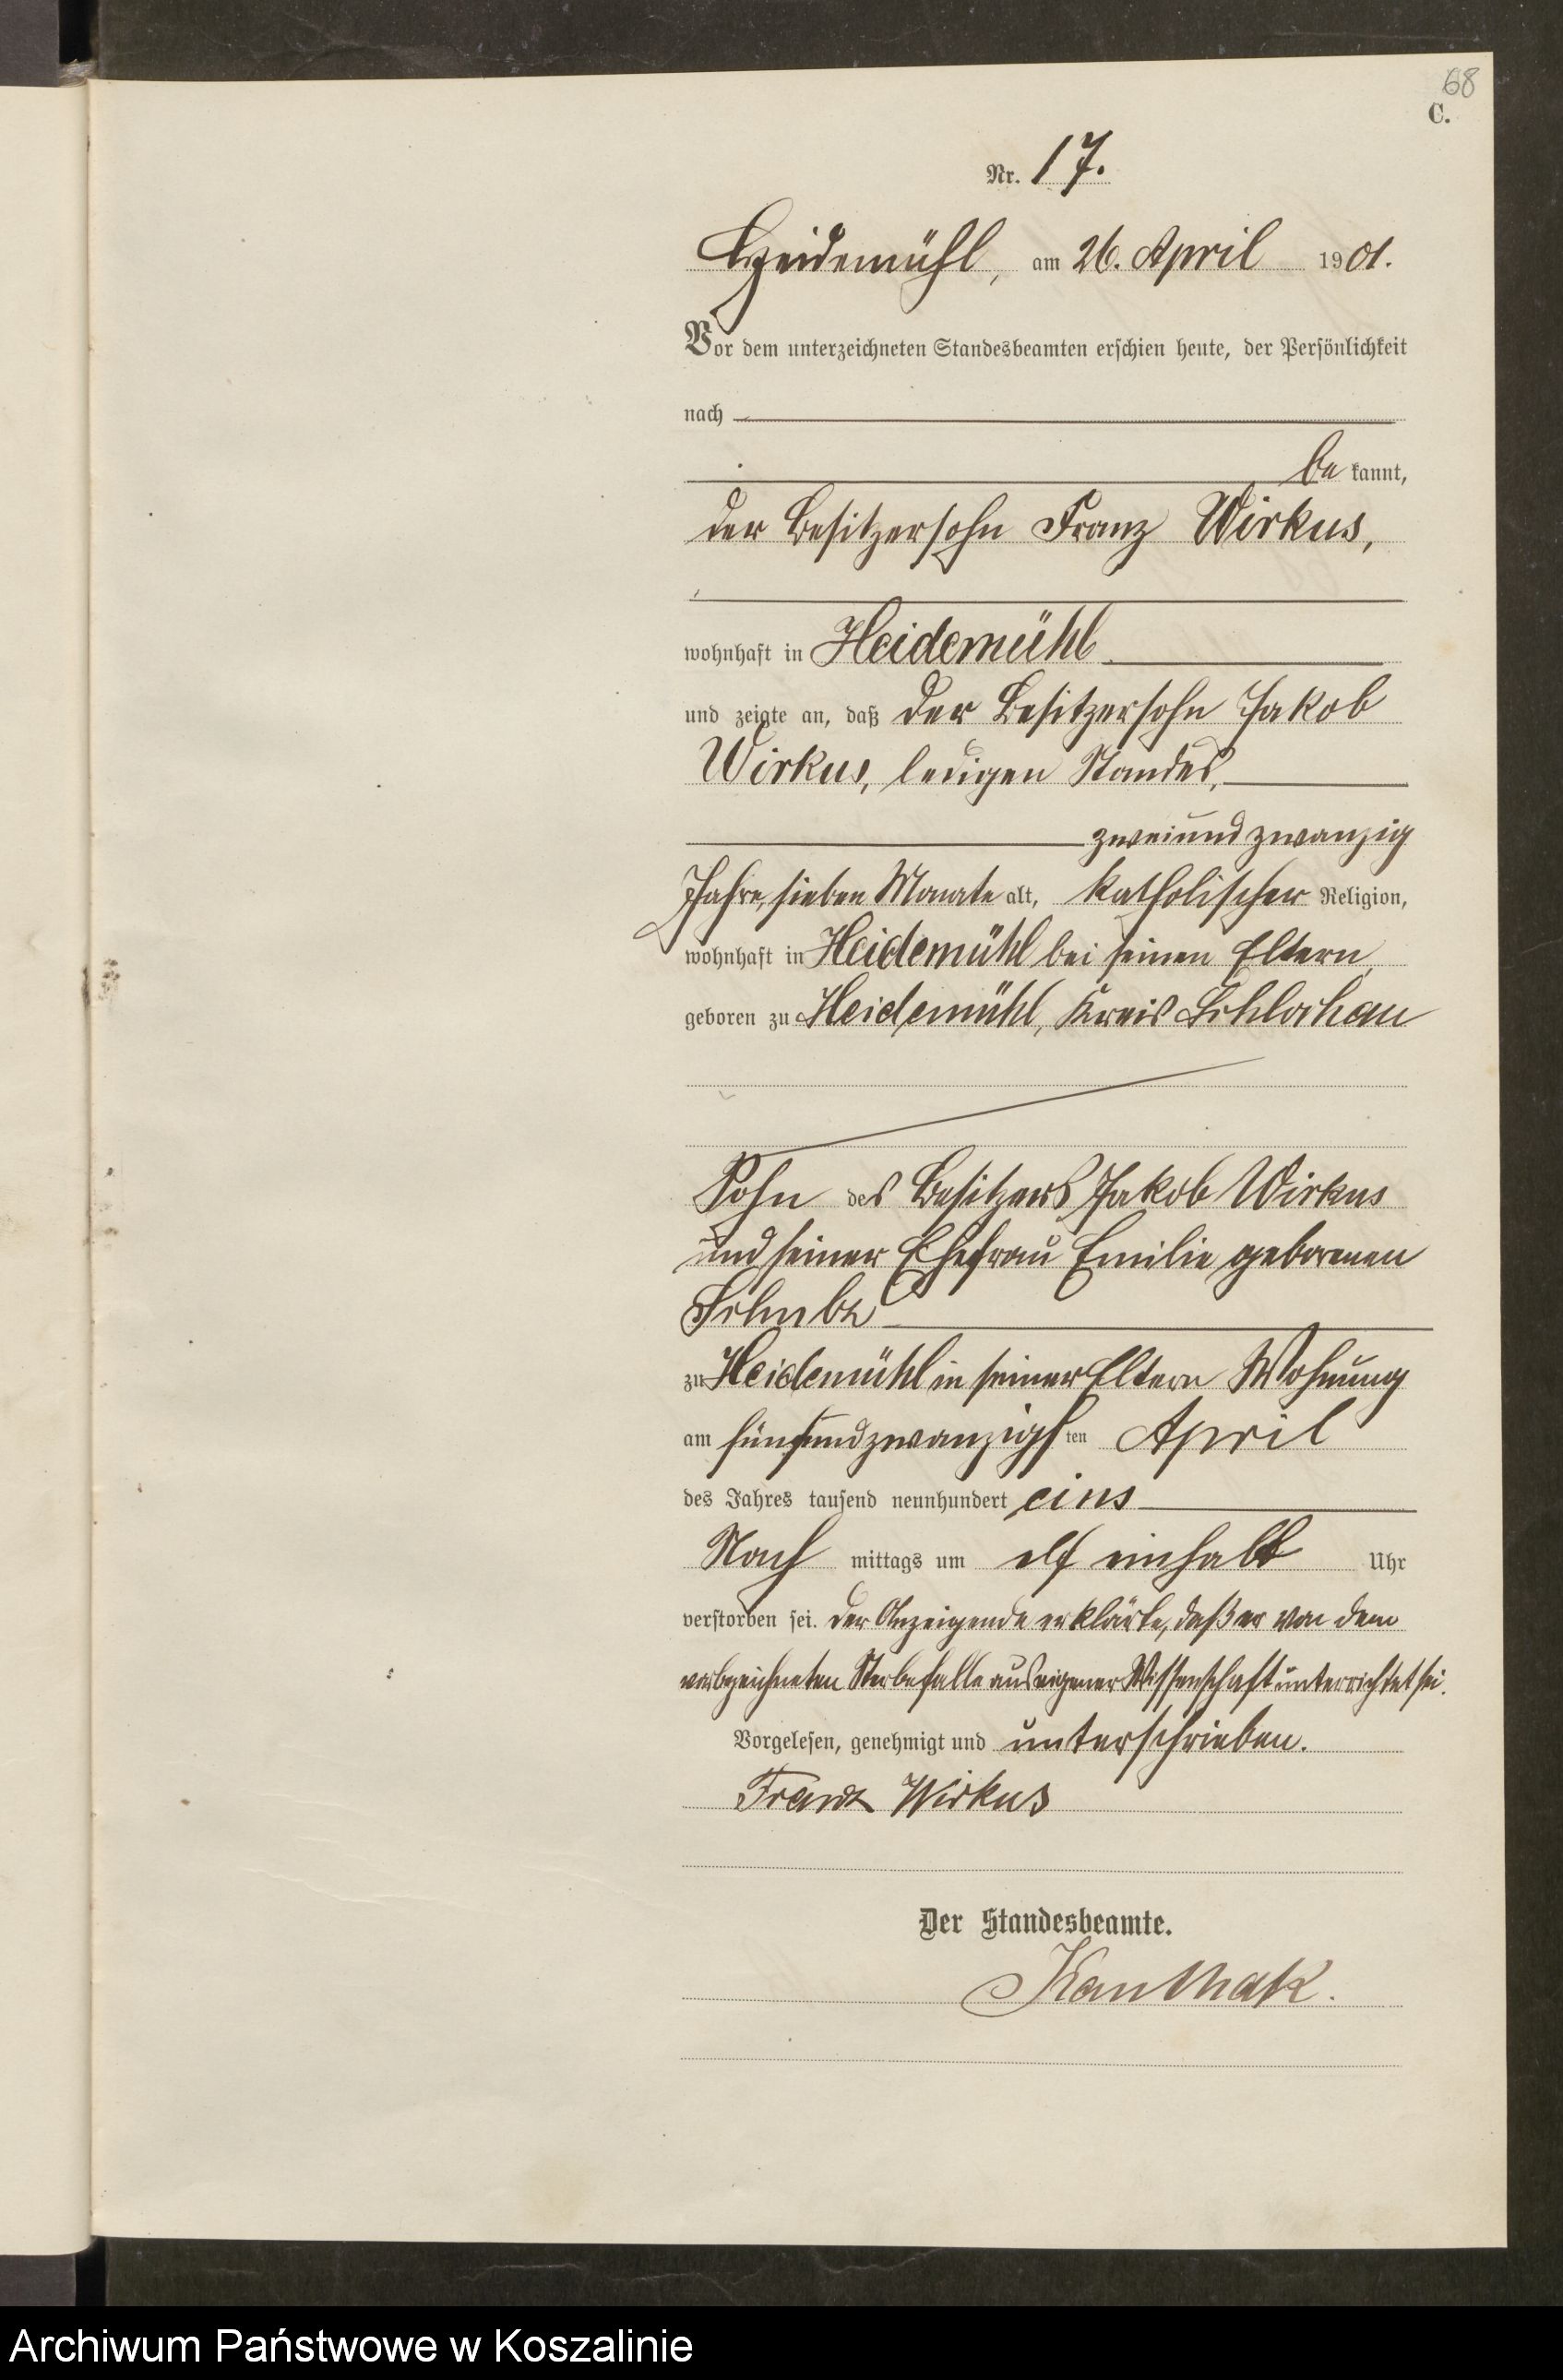 68
C.
Nr. 17.
Heidemühl, am 26. April 1901.
Vor dem unterzeichneten Standesbeamten erschien heute, der Persönlichkeit
nach
be kannt,
der Besitzersohn Franz Wirkus,
wohnhaft in Heidemühl
und zeigte an, daß der Besitzersohn Jakob
Wirkus, ledigen Standes,
zweiundzwanzig
Jahre, sieben Monate alt, katholischer Religion,
wohnhaft in Heidemühl bei seinen Eltern,
geboren zu Heidemühl, Kreis Schlochau
Sohn des Besitzers Jakob Wirkus
und seiner Ehefrau Emilie geborenen
zu Heidemühl in seiner Eltern Wohnung
am fünfundzwanzigsten April
des Jahres tausend neunhundert eins
Nach mittags um elf einhalb Uhr
verstorben sei. Der Anzeigende erklärte, daß er von dem
vorbezeichneten Sterbefalle aus eigener Wissenschaft unterrichtet sei.
Vorgelesen, genehmigt und unterschrieben.
Franz Wirkus
Der Standesbeamte.
Kanthak.
Archiwum Państwowe w Koszalinie